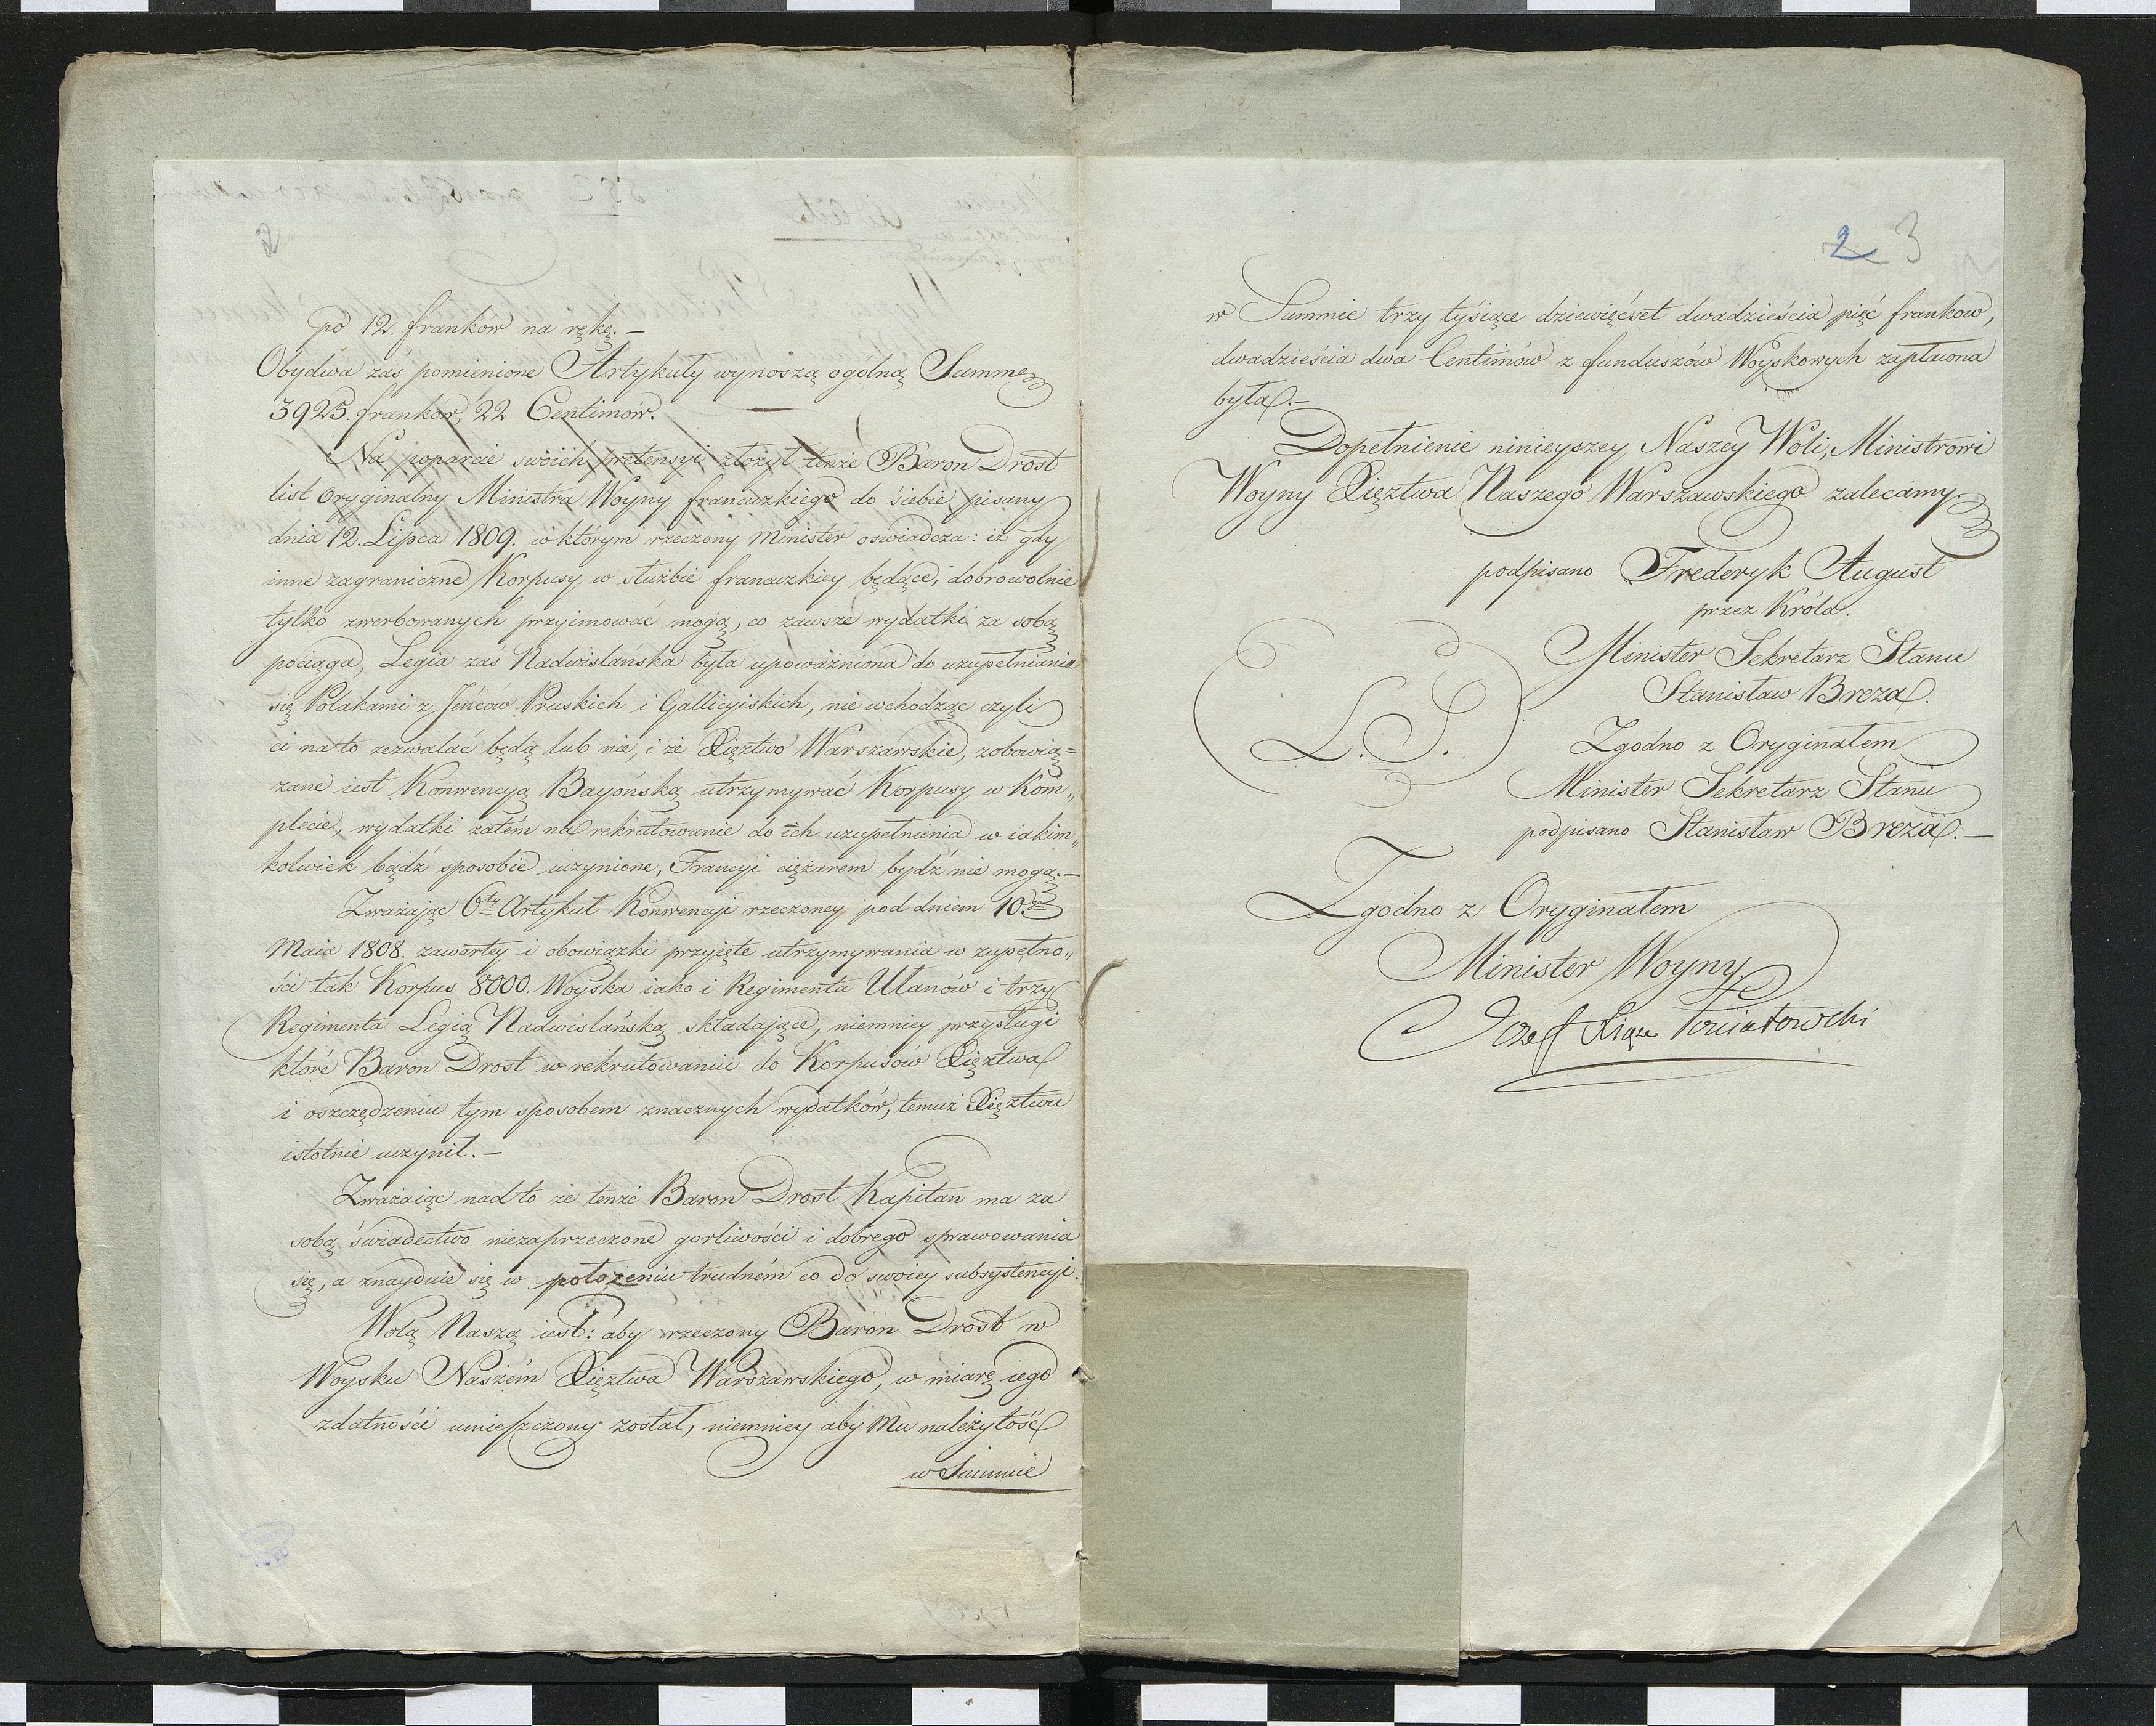 po 12. franków na rękę. –
Obydwa zaś pomienione Artykuły wynoszą ogólną Summę
3925. franków, 22 Centimów. —
Na poparcie swoich pretensyi złożył tenże Baron Drost
list oryginalny Ministra Woyny francuzkiego do siebie pisany
dnia 12. Lipca 1809. w którym rzeczony Minister oswiadcza: iż gdy
inne zagraniczne Korpusy w służbie francuzkiey będące, dobrowolnie
tylko zwerbowanych przyimować mogą, co zawsze wydatki za sobą
pociąga, Legia zaś Nadwislańska była upoważniona do uzupełniania
się Polakami z Jeńców Pruskich i Gallicyiskich, nie wchodząc czyli
ci na to zezwalać będą lub nie, i że Xięztwo Warszawskie, zobowią=
zane iest Konwencyą Bayońską utrzymywać Korpusy w Kom„
plecie, wydatki zatém na rekrutowanie do ich uzupełnienia w iakim„
kolwiek bądź sposobie uczynione, Francyi ciężarem bydź nie mogą. –
Zważając 6ty Artykuł Konwencyi rzeczoney pod dniem 10.
Maia 1808. zawartey i obowiązki przyięte utrzymywania w zupełno„
ści tak Korpus 8000. Woyska iako i Regimenta Ułanów i trzy
Regimenta Legią Nadwislańską składaiące, niemniey przysługi
które Baron Drost w rekrutowaniu do Korpusów Xięztwa
i oszczędzeniu tym sposobem znacznych wydatków, temuż Xięztwu
istotnie uczynił. –
Zważaiąc nad to że tenże Baron Drost Kapitan ma za
sobą świadectwo niezaprzeczone gorliwości i dobrego sprawowania
się, a znayduie się w położeniu trudném co do swoiey subsystencyi.
Wolą Naszą iest: aby rzeczony Baron Drost w
Woysku Naszém Xięztwa Warszawskiego, w miarę iego
zdatności umieszczony został, niemniey aby Mu należytość
w Summie
2 3
w Summie trzy tysiące dziewięćset dwadzieścia pięć frankow,
dwadzieścia dwa Centimów z funduszów Woyskowych zapłacona
była. –
Dopełnienie ninieyszey Naszey Woli, Ministrowi
Woyny Xięztwa Naszego Warszawskiego zalecamy.
podpisano Fréderyk August
przez Króla.
Minister Sekretarz Stanu
Stanisław Breza.
L. S.
Zgodno z Oryginałem
Minister Sekretarz Stanu
podpisano Stanisław Breza. –
Zgodno z Oryginałem
Minister Woyny
Józef Xiąże Poniatowski